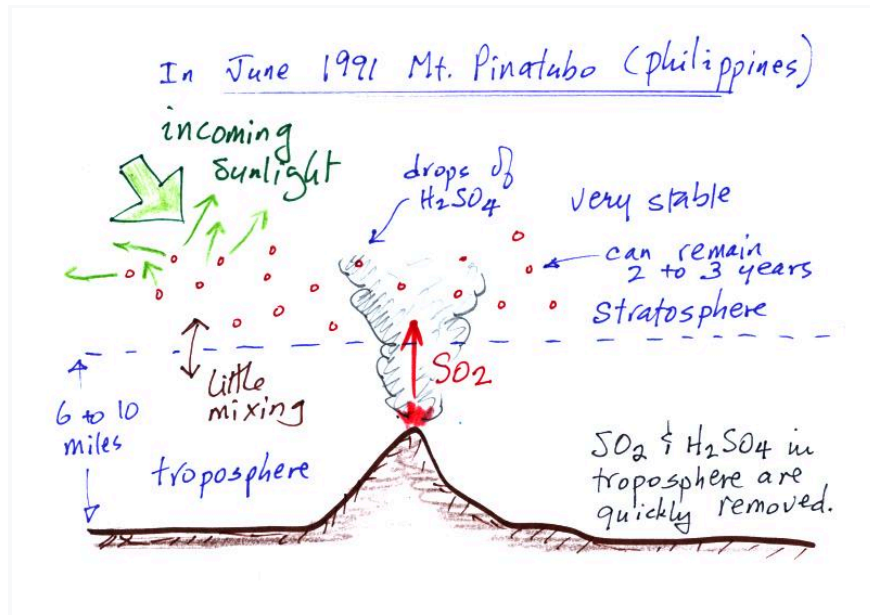 In June 1991 Mt. Pinatubo (philippines)
incoming
sunlight
drops of
H₂SO₄
very stable
can remain
2 to 3 years
stratosphere
SO₂
little
mixing
6 to 10
miles
troposphere
SO₂ & H₂SO₄ in
troposphere are
quickly removed.